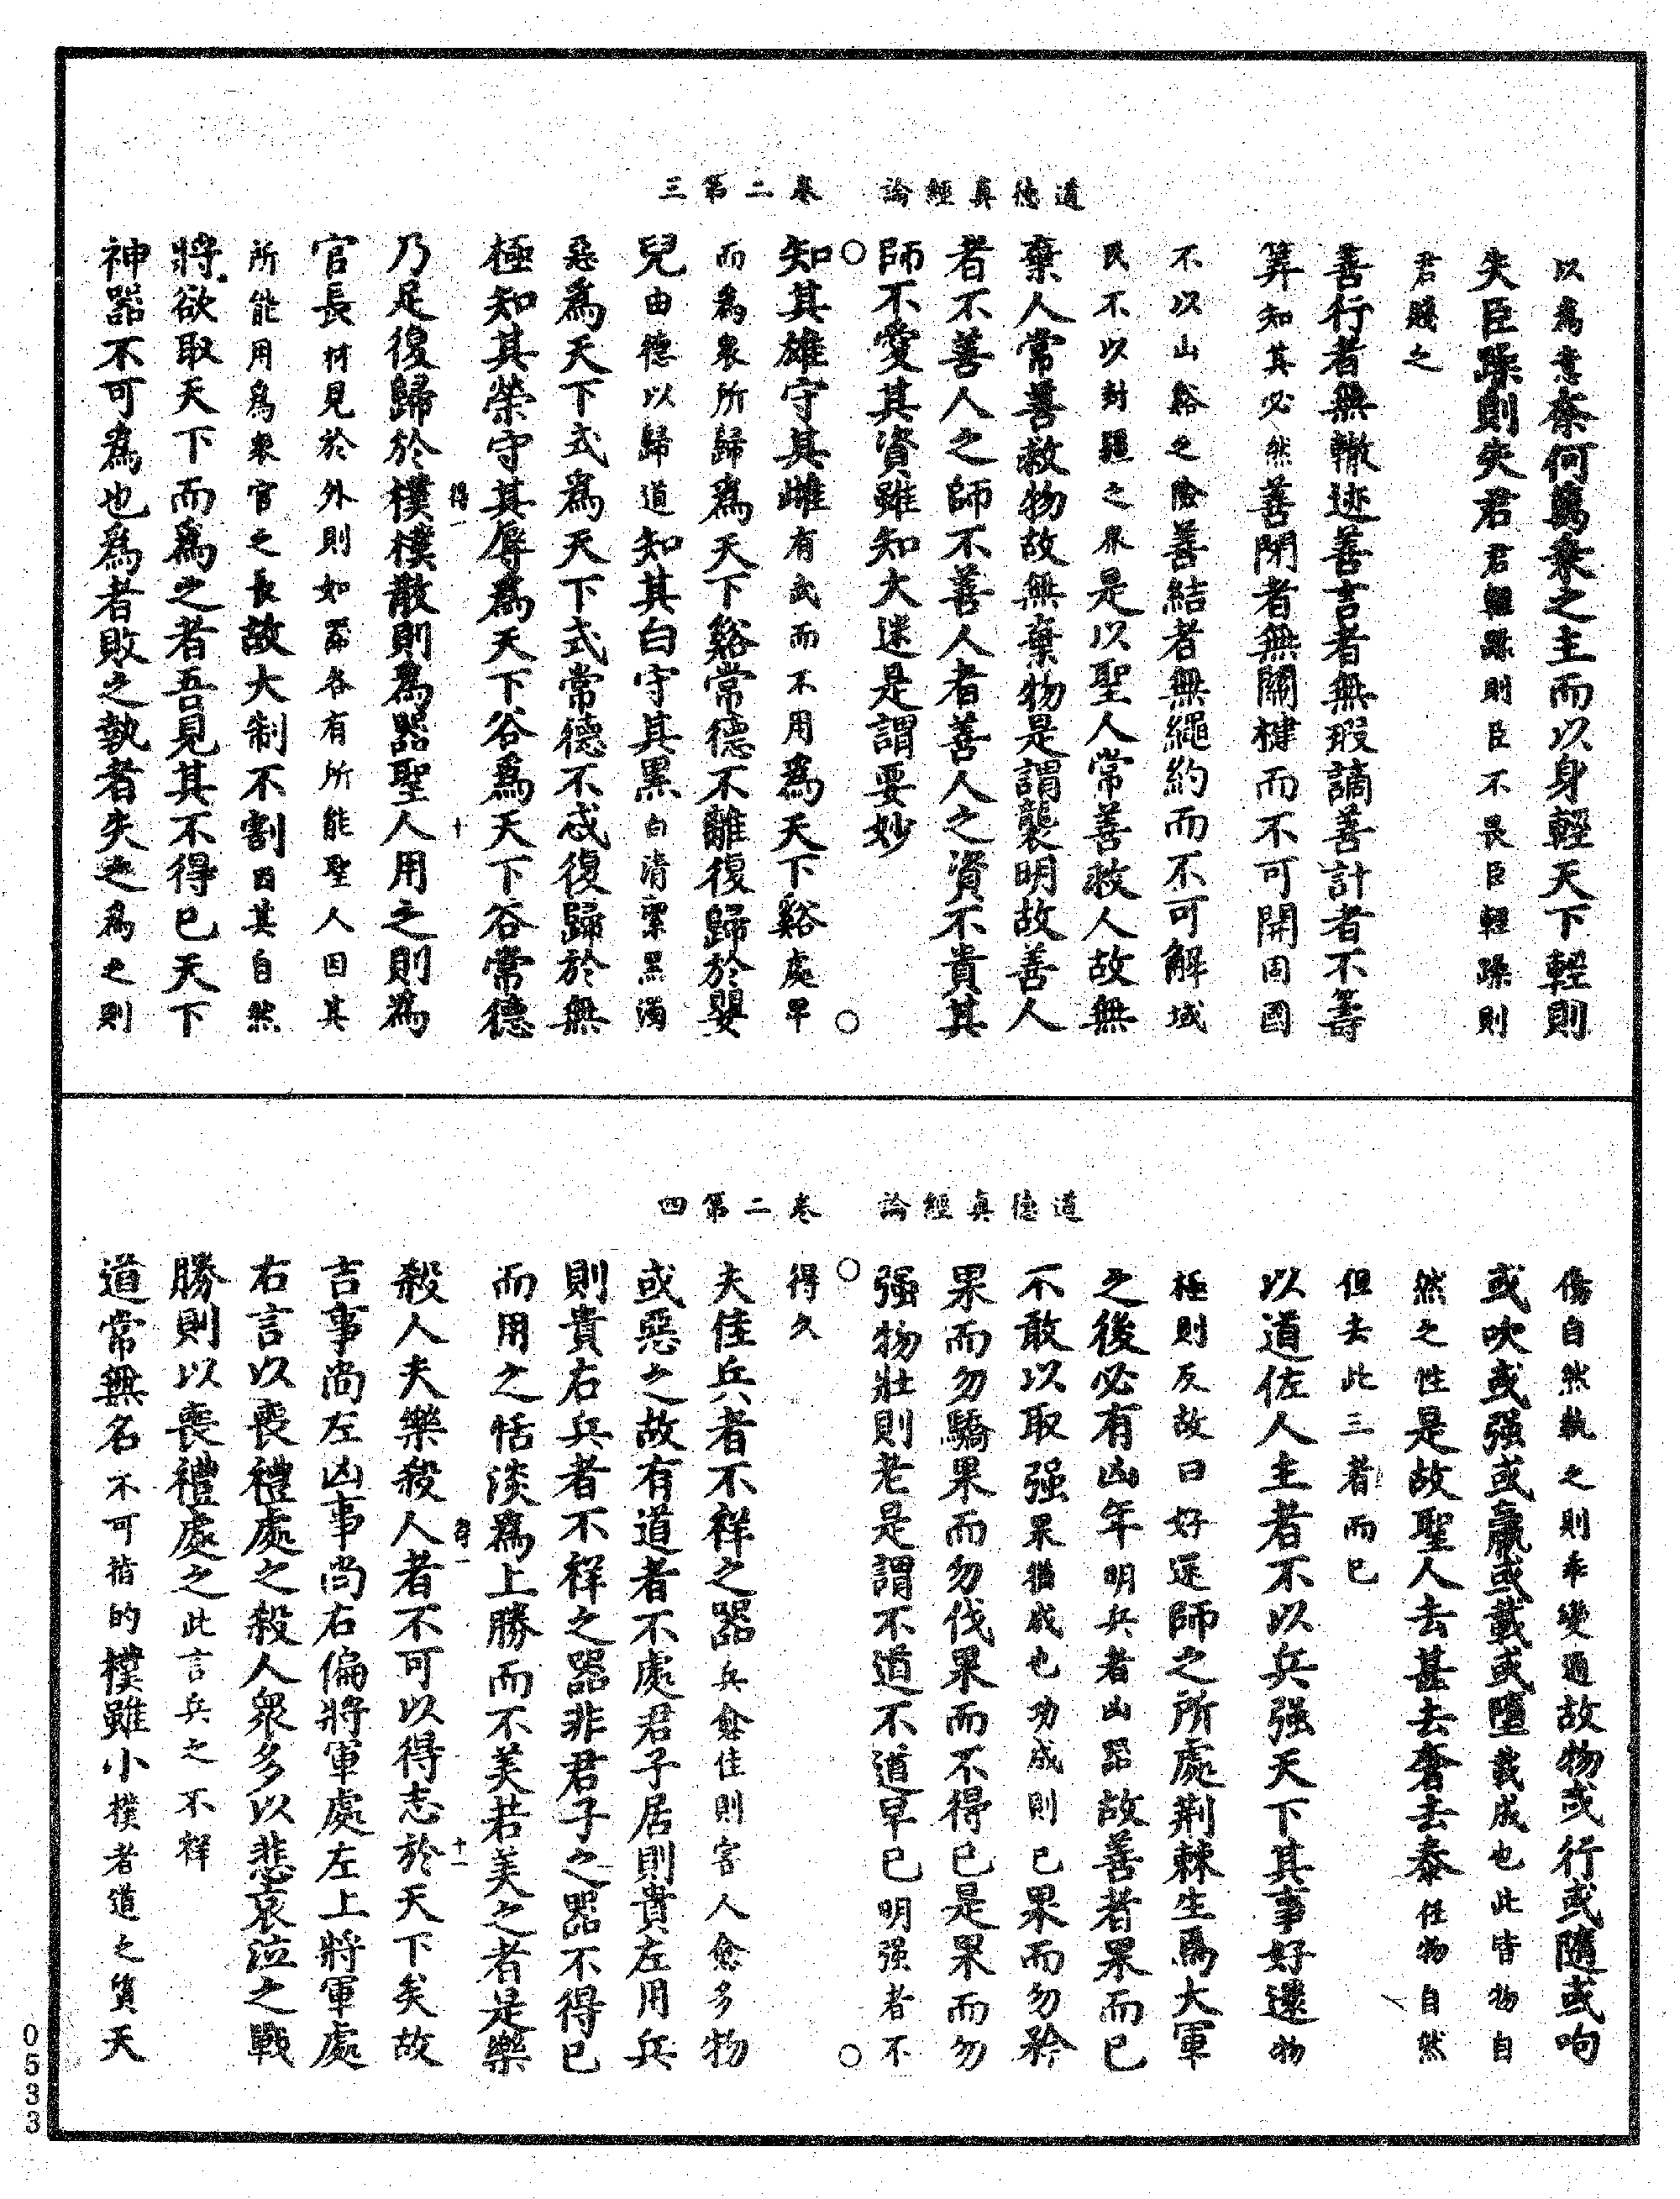 道德真經論　卷二第三
以爲意奈何萬乘之主而以身輕天下輕則
失臣躁則失君君輕躁則臣不畏臣輕躁則
君賤之
善行者無轍迹善言者無瑕謫善計者不籌
筭知其必然善閉者無關楗而不可開固國
不以山谿之險善結者無繩約而不可解域
民不以封疆之界是以聖人常善救人故無
棄人常善救物故無棄物是謂襲明故善人
者不善人之師不善人者善人之資不貴其
師不愛其資雖知大迷是謂要妙
知其雄守其雌有武而不用爲天下谿處卑
而爲衆所歸爲天下谿常德不離復歸於嬰
兒由德以歸道知其白守其黑白清潔黑濁
惡爲天下式爲天下式常德不忒復歸於無
極知其榮守其辱爲天下谷爲天下谷常德
得一　十
乃足復歸於樸樸散則爲器聖人用之則爲
官長材見於外則如器各有所能聖人因其
所能用爲衆官之長故大制不割因其自然
將欲取天下而爲之者吾見其不得已天下
神器不可爲也爲者敗之執者失之爲之則
道德真經論　卷二第四
傷自然執之則乖變通故物或行或隨或呴
或吹或强或羸或載或隳載成也此皆物自
然之性是故聖人去甚去奢去泰任物自然
但去此三者而已
以道佐人主者不以兵强天下其事好還物
極則反故曰好還師之所處荆棘生焉大軍
之後必有凶年明兵者凶器故善者果而已
不敢以取强果猶成也功成則已果而勿矜
果而勿驕果而勿伐果而不得已是果而勿
强物壯則老是謂不道不道早已明强者不
得久
夫佳兵者不祥之器兵愈佳則害人愈多物
或惡之故有道者不處君子居則貴左用兵
則貴右兵者不祥之器非君子之器不得已
而用之恬淡爲上勝而不美若美之者是樂
得一　十一
殺人夫樂殺人者不可以得志於天下矣故
吉事尚左凶事尚右偏將軍處左上將軍處
右言以喪禮處之殺人衆多以悲哀泣之戰
勝則以喪禮處之此言兵之不祥
道常無名不可指的樸雖小樸者道之質天
0533